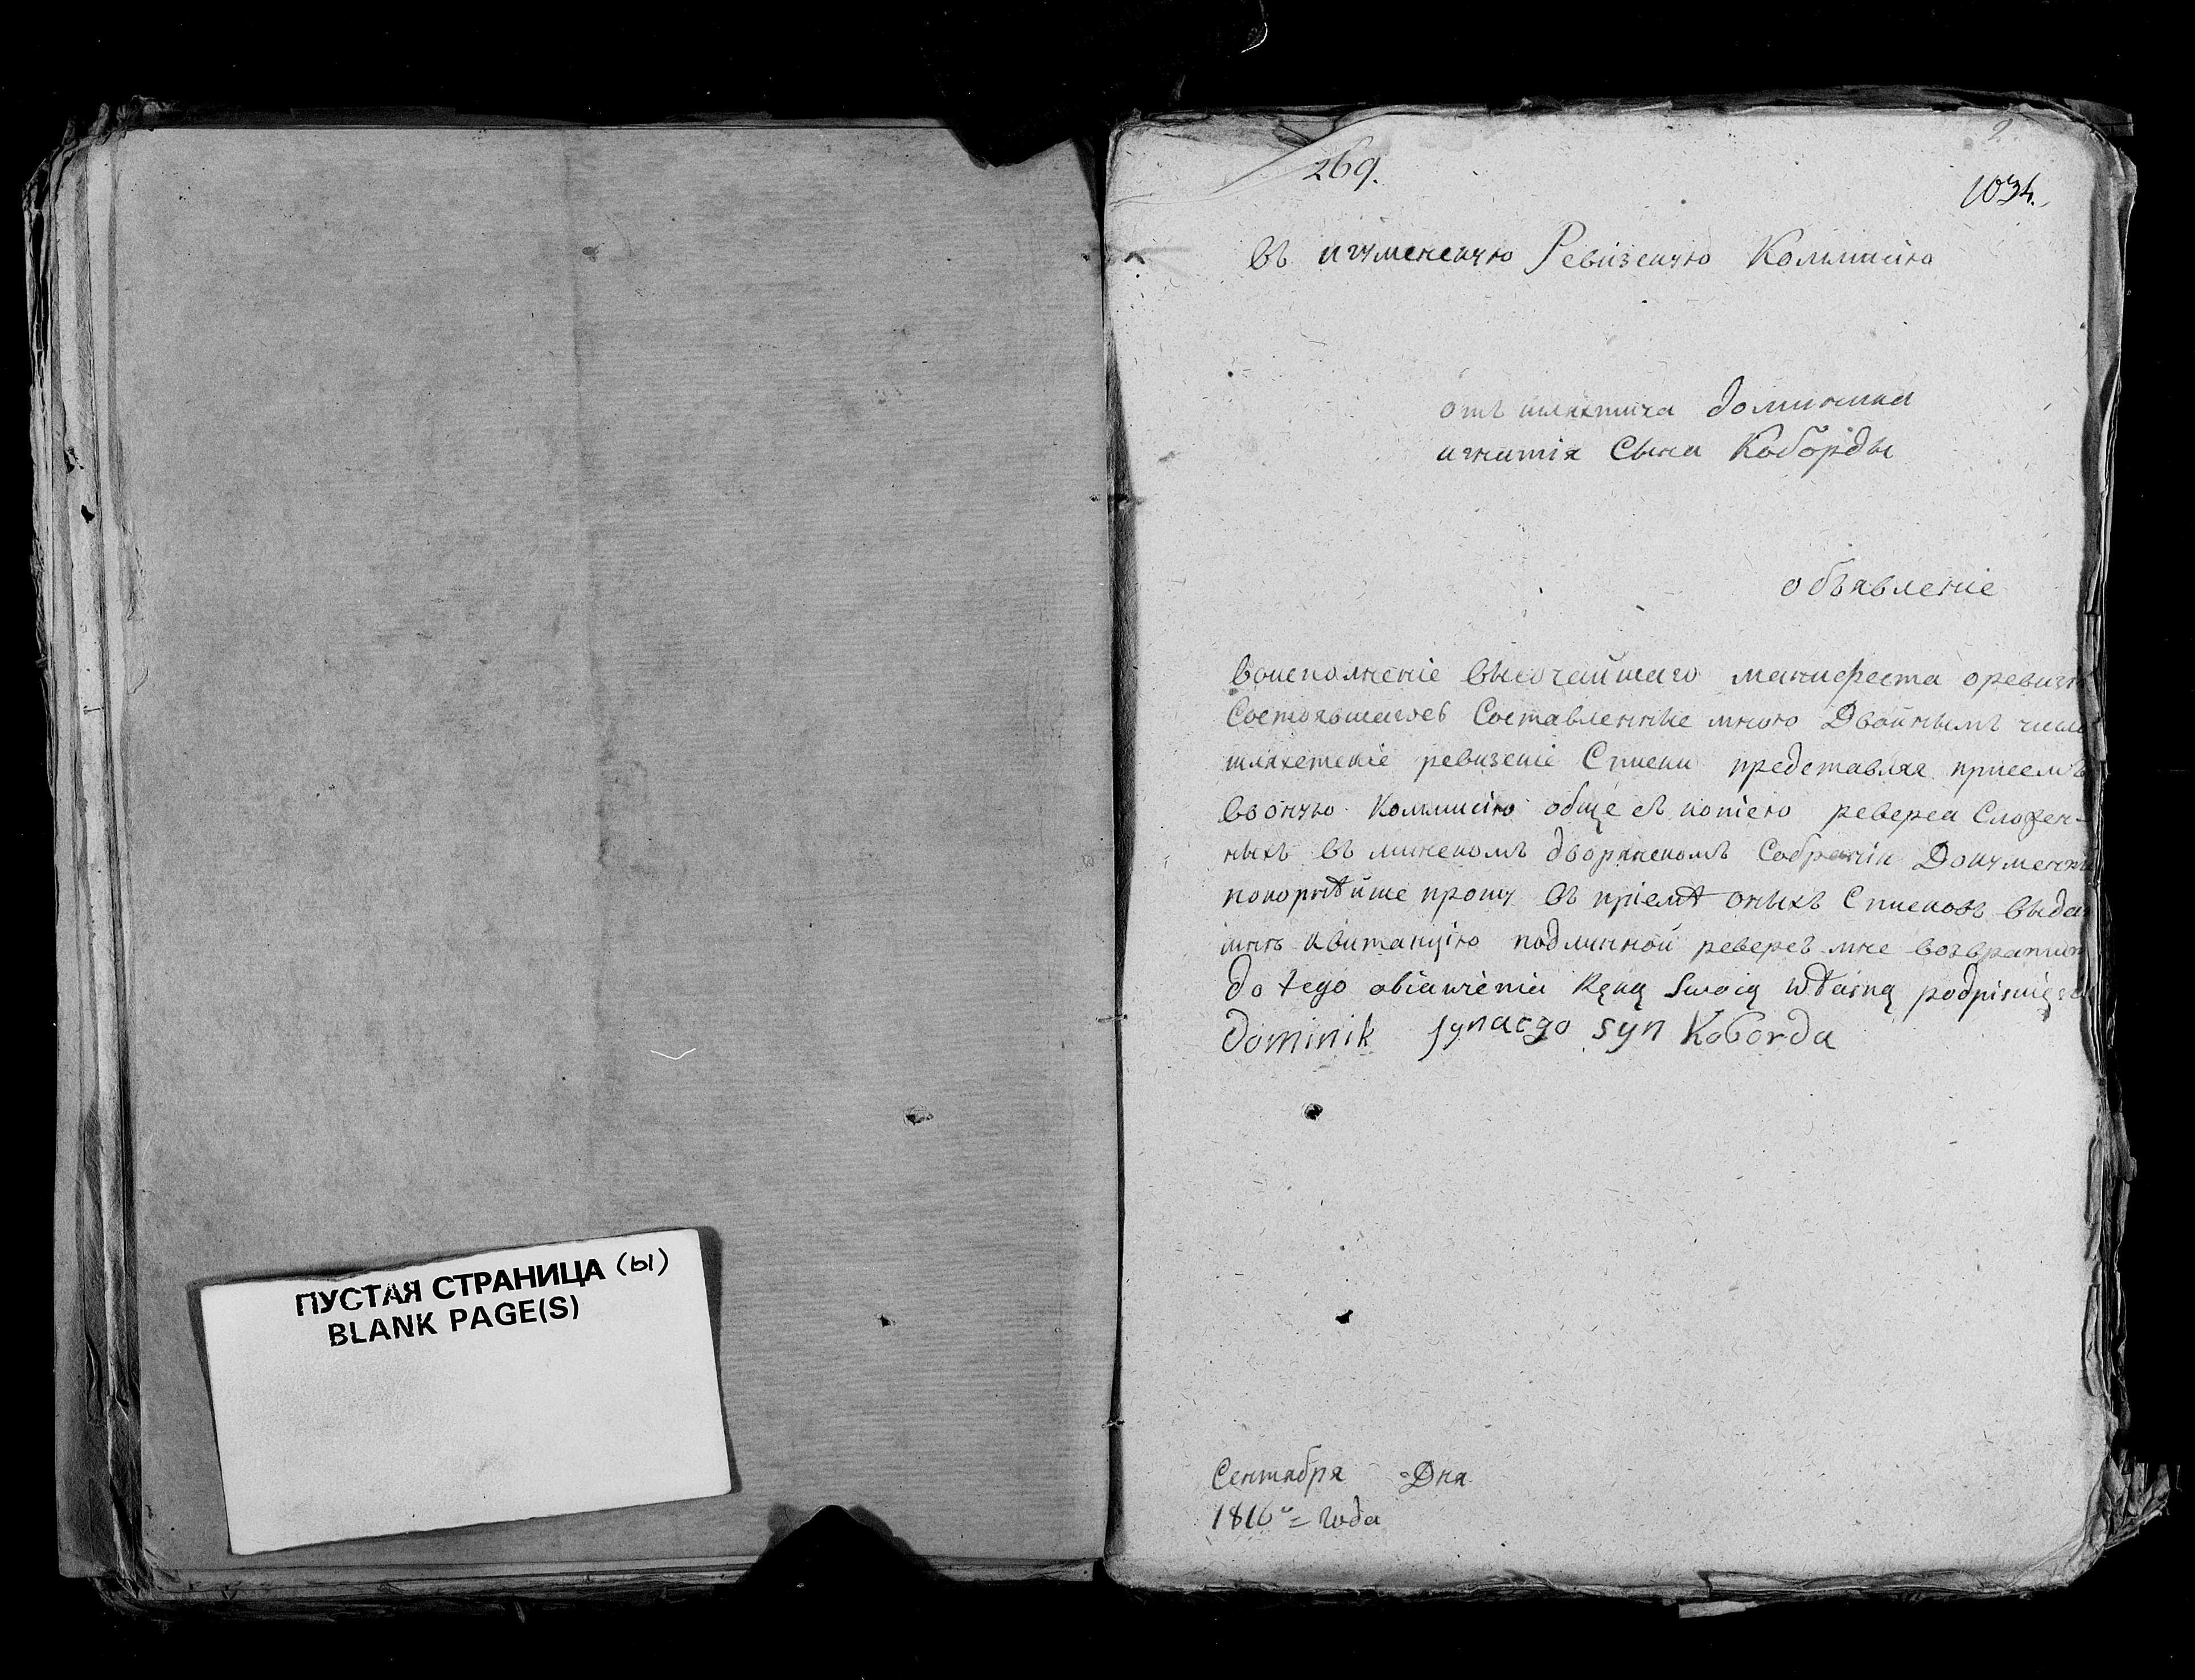 ПУСТАЯ СТРАНИЦА (ы)
BLANK PAGE(S)
2
269.
1034.
Въ игуменскую Ревизскую Коммисію
отъ шляхтича доминика
игнатія Сына Кобо́рды
объявленіе
Воисполненіе Высочайшаго манифеста оревиз
Состоявшагося Составленные мною Двойнымъ числ
шляхетскіе ревизскіе Списки представляя присемъ
Вооную Коммисію обще съ копіею реверса Сложен-
ныхъ Въ минскомъ дворянскомъ Собраніи Документ
покорнѣйше прошу Въ пріемѣ оныхъ Списковъ Выда
мнѣ квитанцію подлинной реверсъ мне возврати
Do tego obiawienia Ręką Swoią własną podpisuię
Dominik Jgnacgo syn Koborda
Сентября Дня
1816 = года